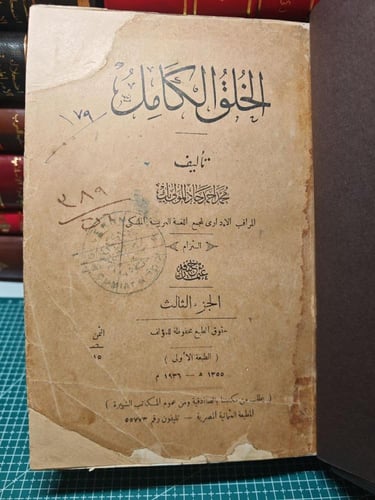 الخلق الكامل
١٧٩
تأليف
محمد احمد جاد المولى بك
المراقب الادارى لمجمع اللغة العربية الملكى
٣٨٩
التزام
الجزء الثالث
حقوق الطبع محفوظة للمؤلف
الثمن
١٥
( الطبعة الأولى )
١٣٥٥ ھ — ١٩٣٦ م
( يطلب من مكتبتنا بالصنادقية ومن عموم المكاتب الشهيرة )
المطبعة العثمانية المصرية — تليفون رقم ٥٥٧٧٣